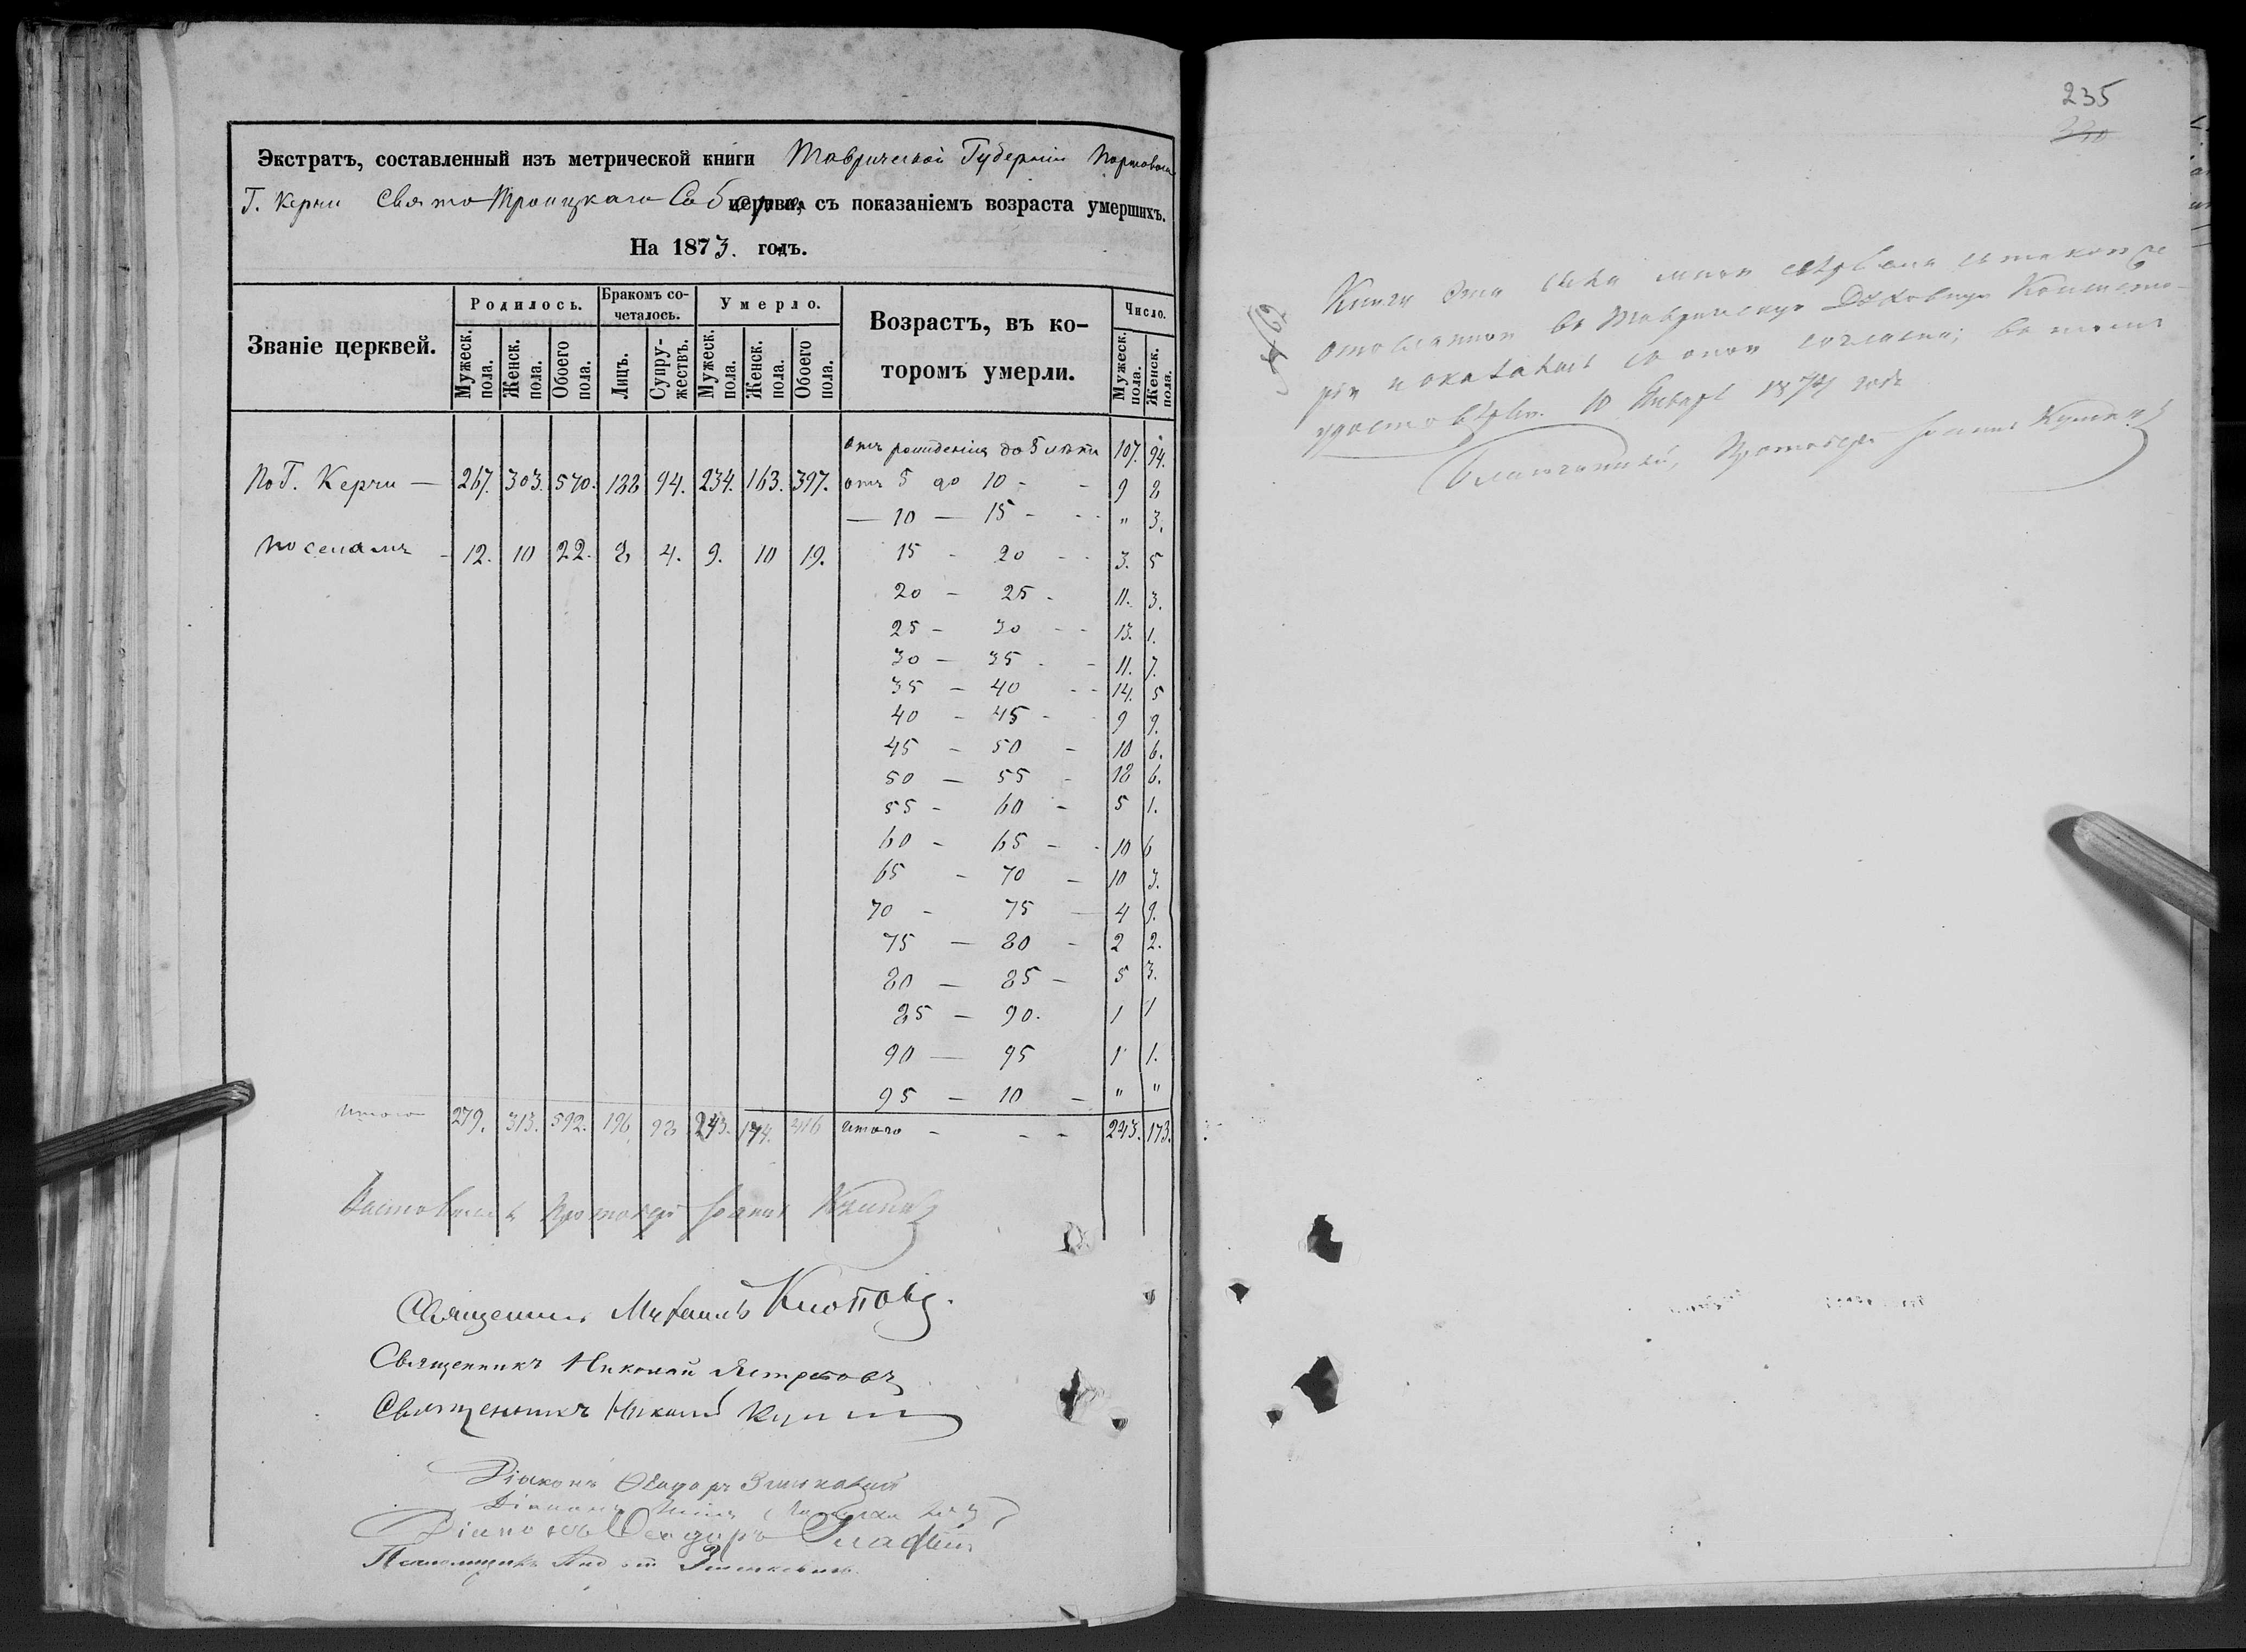 Экстратъ, составленный изъ метрической книги Таврической Губерніи Портоваго
Г. Керчи Свято Троицкаго Собора церкви, съ показаніемъ возраста умершихъ.
На 1873. годъ.
Званіе церквей. Родилось. Бракомъ со-четалось. Умерло. Возрастъ, въ ко-торомъ умерли. Число.
Мужеск. пола. Женск. пола. Обоего пола. Лицъ. Супру-жествъ. Мужеск. пола. Женск. пола. Обоего пола. Мужеск. пола. Женск. пола.
Отъ рожденія до 5 лѣтъ 107. 94.
По Г. Керчи — 267. 303. 570. 188 94. 234. 163. 397. отъ 5 до 10 - - 9 8
— 10 — 15 - - - " 3.
По селамъ - 12. 10 22. 8 4. 9. 10 19. 15 - 20 - - 3. 5
20 - 25 - 11. 3.
25 - 30 - - 13. 1.
30 - 35 - - 11. 7.
35 - 40 - - 14. 5
40 - 45 - - 9 9.
45 - 50 - 10 6.
50 — 55 - 18 6.
55 - 60 - 5 1.
60 - 65 - - 10 6
65 - 70 - 10 3.
70 - 75 — 4 9.
75 — 80 - 2 2.
80 — 85 - 5 3.
85 — 90. 1 1
90 — 95 1 1.
95 — 10 - " "
Итого 279. 313. 592. 196 98 243. 174. 416 Итого - - - 243. 173.
Протоіерей Іоаннъ
Священникъ Михаилъ
Священникъ Николай
Священникъ Николай
Діаконъ Ѳеодоръ
Діаконъ
Діаконъ Ѳеодоръ
235
230
Книга эта была мною свѣрена съ таковою же
отосланною въ Таврическую Духовную Консисто-
рію и оказалась съ оною согласна; въ томъ
удостовѣряю. 10 Января 1874 года
Благочинный, Протоіерей Іоаннъ